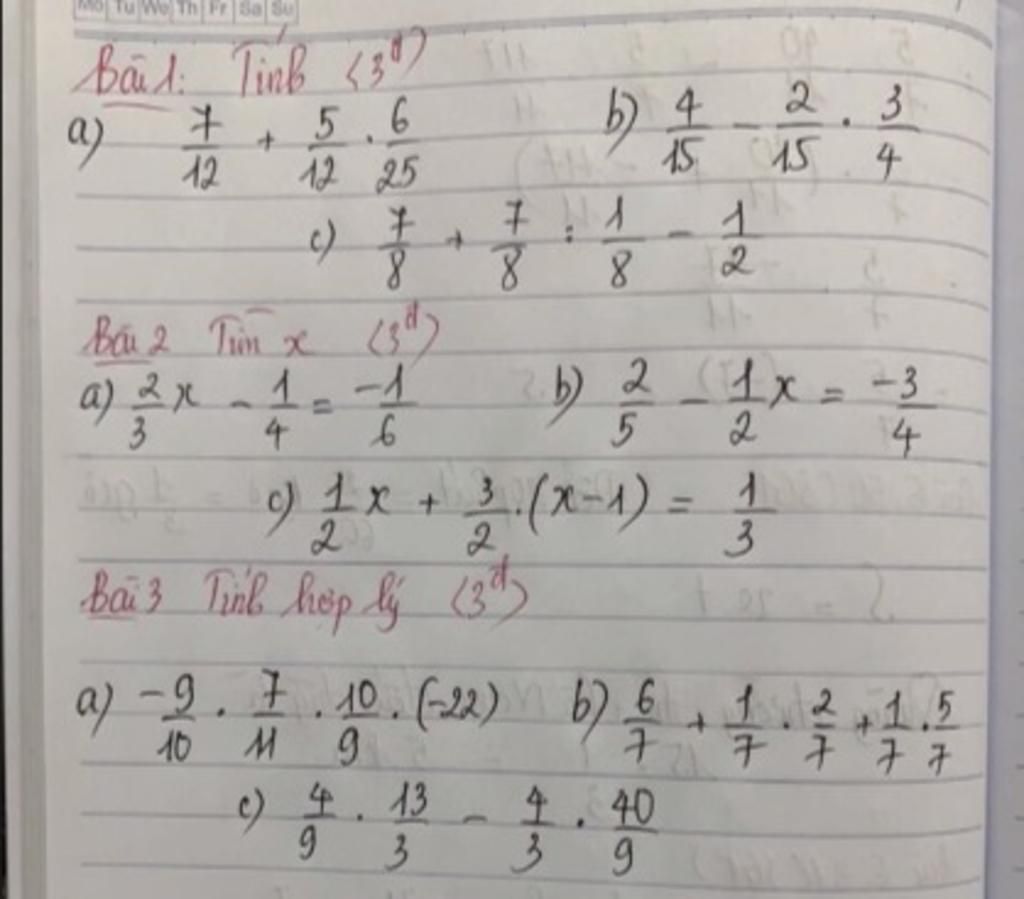 Mo Tu We Th Fr Sa Su
Bài 1: Tính (3đ)
a) 7/12 + 5/12 . 6/25 b) 4/15 - 2/15 . 3/4
c) 7/8 + 7/8 : 1/8 - 1/2
Bài 2 Tìm x (3đ)
a) 2/3 x - 1/4 = -1/6 b) 2/5 - 1/2 x = -3/4
c) 1/2 x + 3/2 . (x-1) = 1/3
Bài 3 Tính hợp lý (3đ)
a) -9/10 . 7/11 . 10/9 . (-22) b) 6/7 + 1/7 . 2/7 + 1/7 . 5/7
c) 4/9 . 13/3 - 4/3 . 40/9